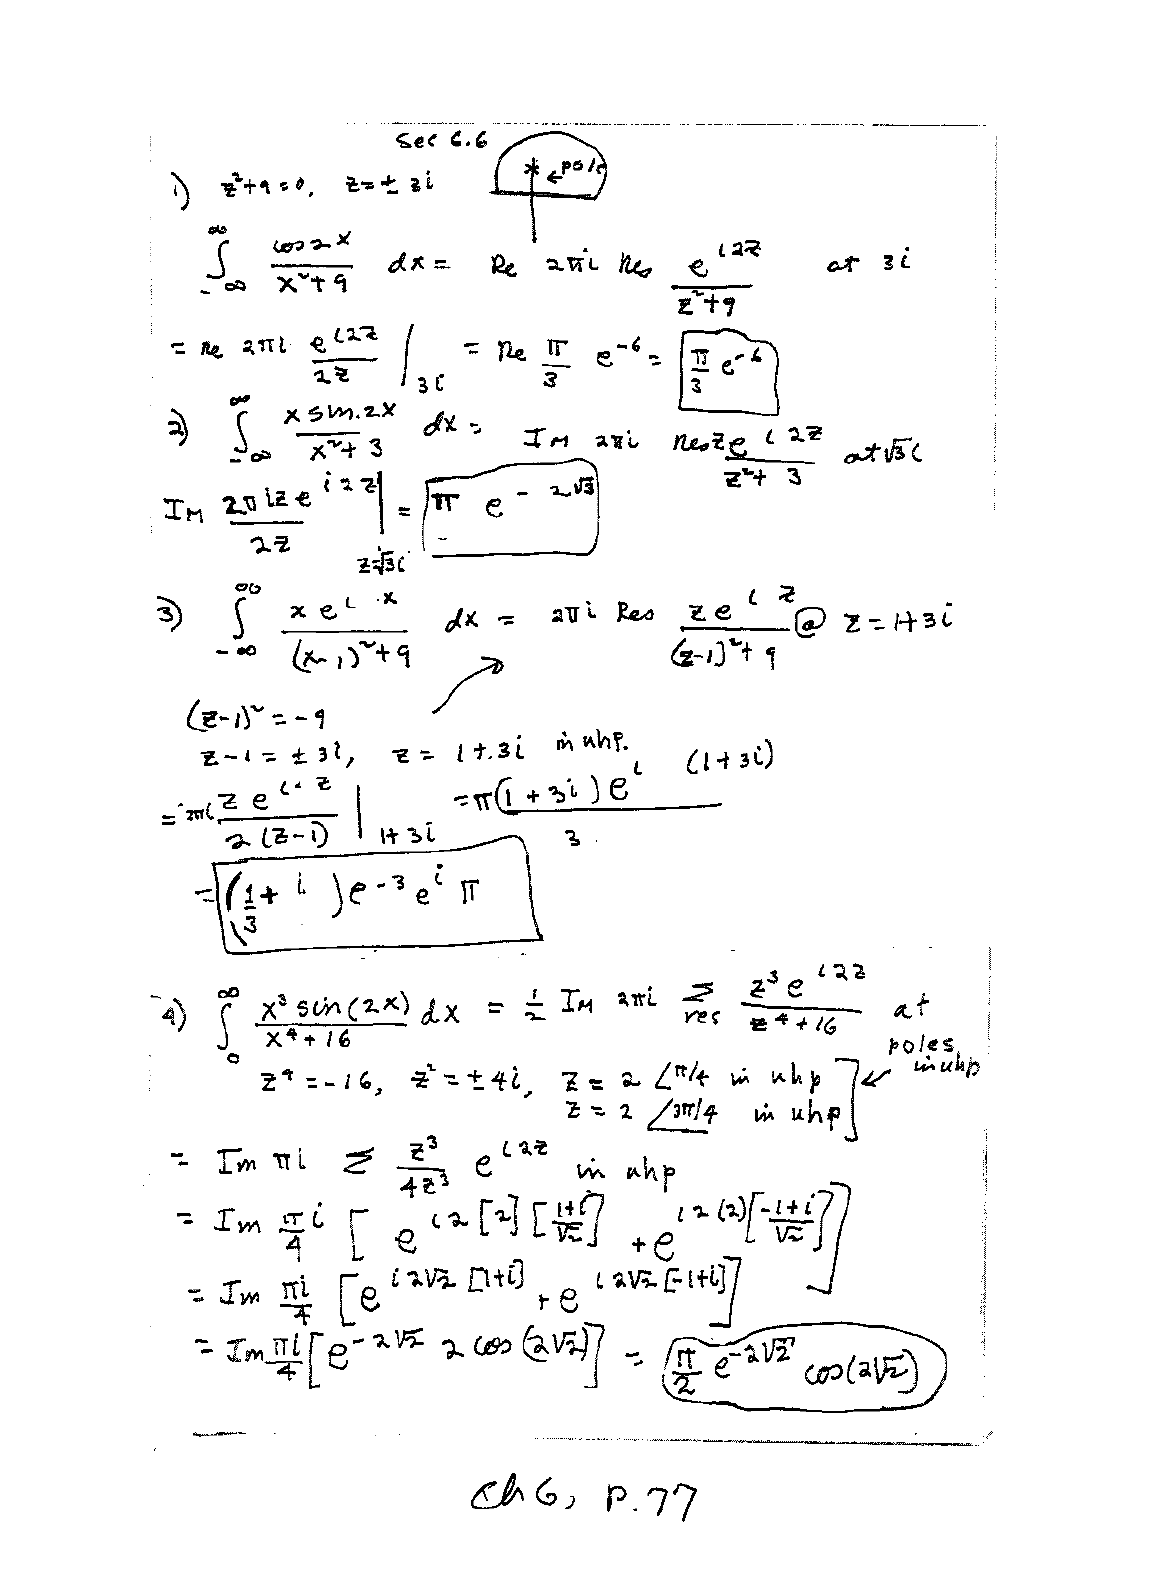 Sec 6.6
1) z²+9=0, z=± 3i ←pole
∫_{-∞}^{∞} cos 2x / (x²+9) dx = Re 2πi Res e^{i2z} / (z²+9) at 3i
= Re 2πi e^{i2z} / 2z |_{3i} = Re π/3 e^{-6} = π/3 e^{-6}
2) ∫_{-∞}^{∞} x sin 2x / (x²+3) dx = Im 2πi Res z e^{i2z} / (z²+3) at √3 i
Im 2πi z e^{i2z} / 2z |_{z=√3i} = π e^{-2√3}
3) ∫_{-∞}^{∞} x e^{ix} / ((x-1)²+9) dx = 2πi Res z e^{iz} / ((z-1)²+9) @ z=1+3i
(z-1)² = -9
z-1 = ± 3i, z = 1+3i in uhp.
= 2πi z e^{iz} / 2(z-1) |_{1+3i} = π(1+3i) e^{i(1+3i)} / 3
= (1/3 + i) e^{-3} e^{i} π
4) ∫_{0}^{∞} x³ sin(2x) / (x⁴+16) dx = 1/2 Im 2πi Σ res z³ e^{i2z} / (z⁴+16) at poles in uhp
z⁴ = -16, z² = ±4i, z = 2 ∠π/4 in uhp
z = 2 ∠3π/4 in uhp
= Im πi Σ z³ / 4z³ e^{i2z} in uhp
= Im π/4 i [ e^{i2[2][(1+i)/√2]} + e^{i2(2)[(-1+i)/√2]} ]
= Im πi/4 [ e^{i2√2[1+i]} + e^{i2√2[-1+i]} ]
= Im πi/4 [ e^{-2√2} 2 cos(2√2) ] = π/2 e^{-2√2} cos(2√2)
Ch 6, p. 77